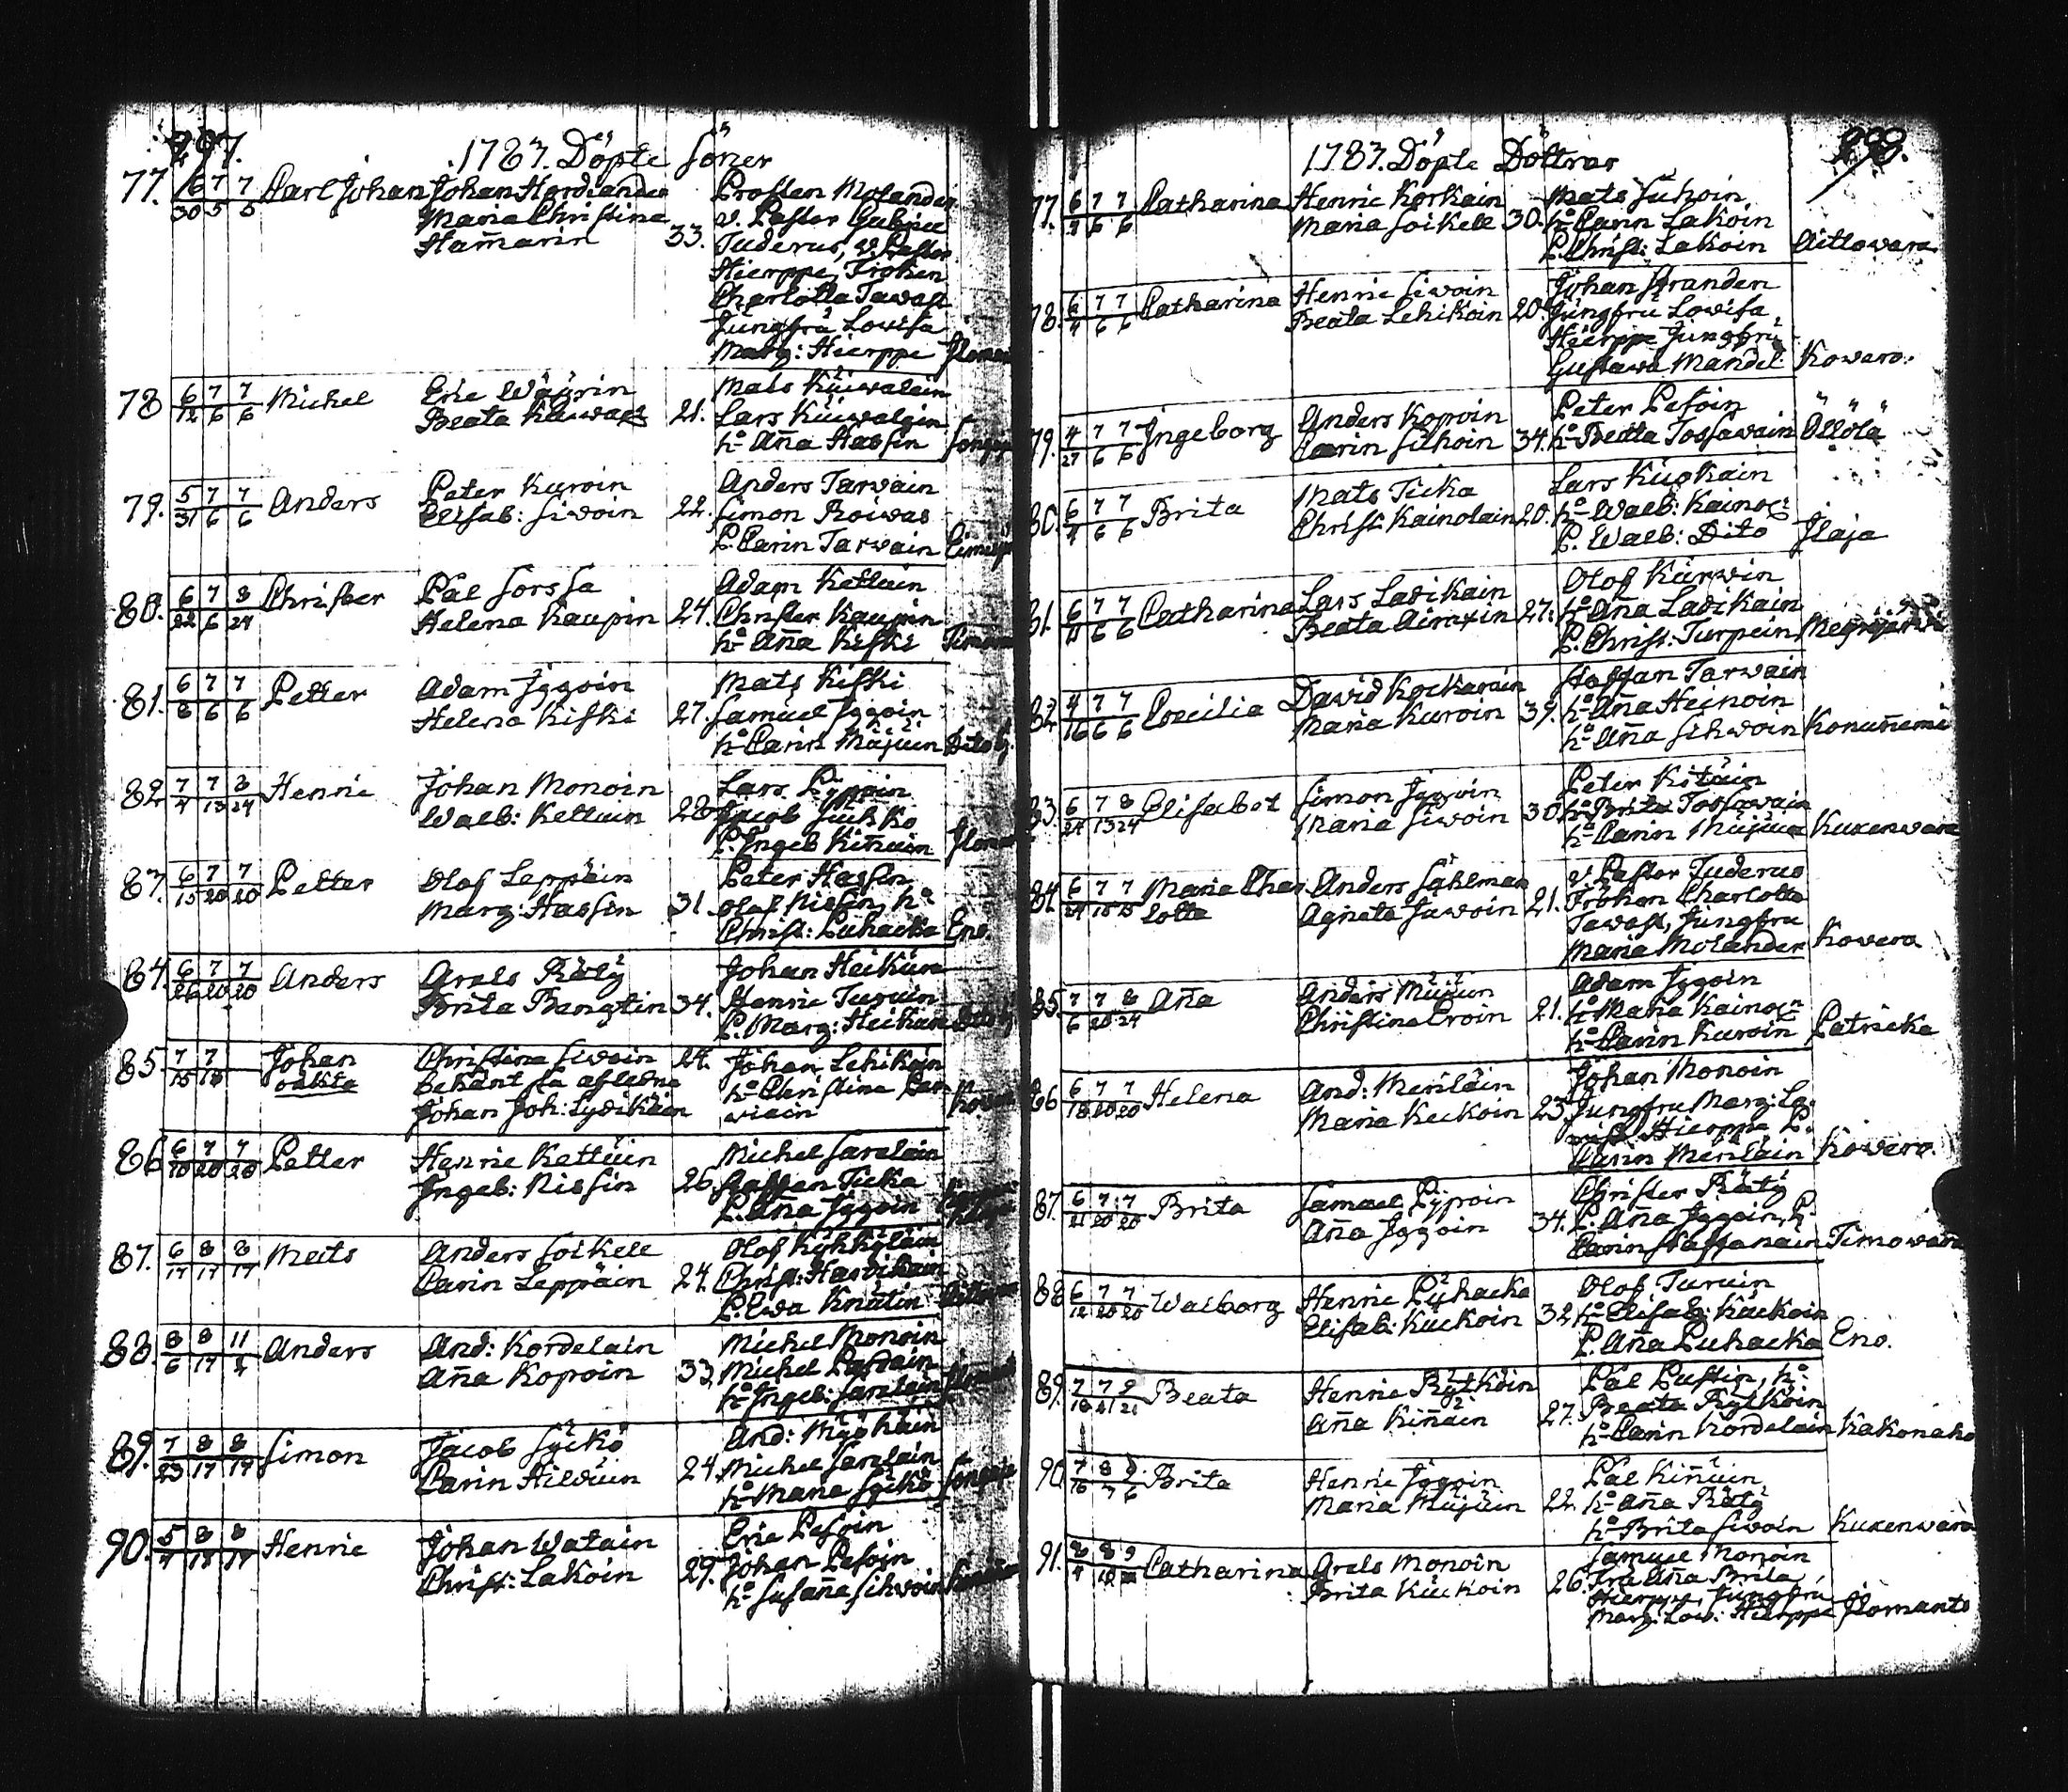 297.
1783. Döpte Söner
77. 6/30 7/5 7/5 Carl Johan Johan Hordiander
Maria Christina
Ham̄arin 33.
Prosten Molander
v. Pastor Gabriel
Tuderus, v. Pastor
Hierppe, Fröken
Charlotta Tawast
Jungfru Lovisa
Marg: Hierppe
78 6/12 7/6 7/6 Michel Eric Wäÿrin
Beata 21.
Mats Kuiwalain
Lars Kuiwalain
ho An̄a Hassin
79. 5/31 7/6 7/6 Anders Peter Kuroin
Elisab: Siwoin 22.
Anders Tarwain
Simon Roiwas
P. Carin Tarwain
80. 6/22 7/6 8/24 Christer Pål Sorssa
Helena Kaupin 24.
Adam Kettuin
Christer Kaupin
ho An̄a Kiski
81. 6/8 7/6 7/6 Petter Adam Iggoin
Helena Kiski 27.
Mats Kiski
Samuel Iggoin
ho Carin Mujuin Dito
82 7/4 7/13 8/24 Henric Johan Monoin
Walb: Kettuin 28
Lars Pÿppoin
Jacob
P. Ingeb Kin̄uin
83. 6/15 7/20 7/20 Petter Olof Leppäin
Marg: Hassin 31.
Peter Hassin
Olof Nissin, ho
Christ: Puhacka Eno
84. 6/26 7/20 7/20 Anders Arels Rätÿ
Brita Bengtin 34.
Johan Heikuin
Henric Turuin
P. Marg: Heikuin
85 7/15 7/18 Johan
oäkta
Christina Siwoin 24.
bekänt la aflidne
Johan Joh: Lydikäin
Johan Lehikoin
ho Christina
86 6/10 7/20 7/20 Petter Henric Kettuin
Ingeb: Nissin 26.
Michel Saralain
Staffan Ticka
P. An̄a Iggoin
87. 6/17 8/17 8/17 Mats Anders Soikele
Carin Leppäin 24.
Olof
Christ:
P. Ewa Knutin
88. 8/6 8/17 11/4 Anders And: Kordelain
An̄a Kopoin 33.
Michel Monoin
Michel
ho Ingeb: Saralain
89. 7/23 8/17 8/17 Simon Jacob
Carin Hilduin 24.
And:
Michel Saralain
ho Maria
90. 5/7 8/18 8/17 Henric Johan Watain
Christ: Lakoin 29.
Eric Pesoin
Johan Pesoin
ho Susan̄a Sihvoin
298.
1783. Döpte Döttrar
77. 6/7 7/6 7/6 Catharina Henric Korkain
Maria Soikele 30.
Mats Suhoin
ho Carin Lakoin
P. Christ: Lakoin Aittowara
78. 6/4 7/6 7/6 Catharina Henric Siwoin
Beata Lehikoin 20.
Johan Granden
Jungfru Lowisa
Hierppe Jungfru
Gustawa Mandel: Kowero.
79. 4/27 7/6 7/6 Ingeborg Anders Kopoin
Carin Sihoin 34.
Peter Pesoin
ho Beata Tossawain Öllölä
80. 6/7 7/6 7/6 Brita Mats Ticka
Christ: Kainolain 20.
Lars
ho Walb: Kaino
P. Walb: Dito Ilaja
81. 6/11 7/6 7/6 Catharina Lars Ladikain
Beata Airaxin 27.
Olof Kärwin
ho An̄a Ladikain
P. Christ: Turpein
82 4/16 7/6 7/6 Cecilia David Kockarain
Maria Kuroin 39.
Staffan Tarwain
ho An̄a Heinoin
ho An̄a Sihvoin Konun̄emi
83. 6/24 7/13 8/24 Elisabet Simon Iggoin
Maria Siwoin 30.
Peter Kituin
ho Brita Tossawain
ho Carin Mujuin Kuxenwara
84. 6/29 7/15 7/15 Maria Char
lotta
Anders Sahlman
Agneta Juwoin 21.
v. Pastor Tuderus
Fröken Charlotta
Tawast, Jungfru
Maria Molander Kowero
85. 7/6 7/20 8/24 An̄a Anders Mujuin
Christina Croin 21.
Adam Iggoin
ho Maria Kaino
ho Carin Kuroin Patricka
86 6/18 7/20 7/20 Helena And: Meriläin
Maria Keckoin 23.
Johan Monoin
Jungfru Marg: Lo
visa Hierppe P.
Carin Meriläin Kowero.
87. 6/21 7/20 7/20 Brita Samuel Pÿppoin
An̄a Iggoin 34.
Christer Rätÿ
P. An̄a Iggoin, h
Carin Staffanain Timowara
88 6/12 7/20 7/20 Walborg Henric Puhacka
Elisab: Kuckoin 32.
Olof Turuin
ho Elisab: Kuckoin
P. An̄a Puhacka Eno.
89. 7/16 7/21 9/21 Beata Henric Rÿtkoin
An̄a Kin̄uin 27.
Pål Pustin, ho
Beata Rÿtkoin
ho Carin Kordelain Kakonaho
90. 7/16 8/7 9/6 Brita Henric Iggoin
Maria Mujuin 22.
Pål Kin̄uin
ho An̄a Rätÿ
ho Brita Siwoin Kuxenwara
91. Catharina Arels Monoin
Brita Kuckoin 26.
Samuel Monoin
Fru An̄a Brita
Hierppe, Jungfru
Marg: Low: Hierppe Ilomants